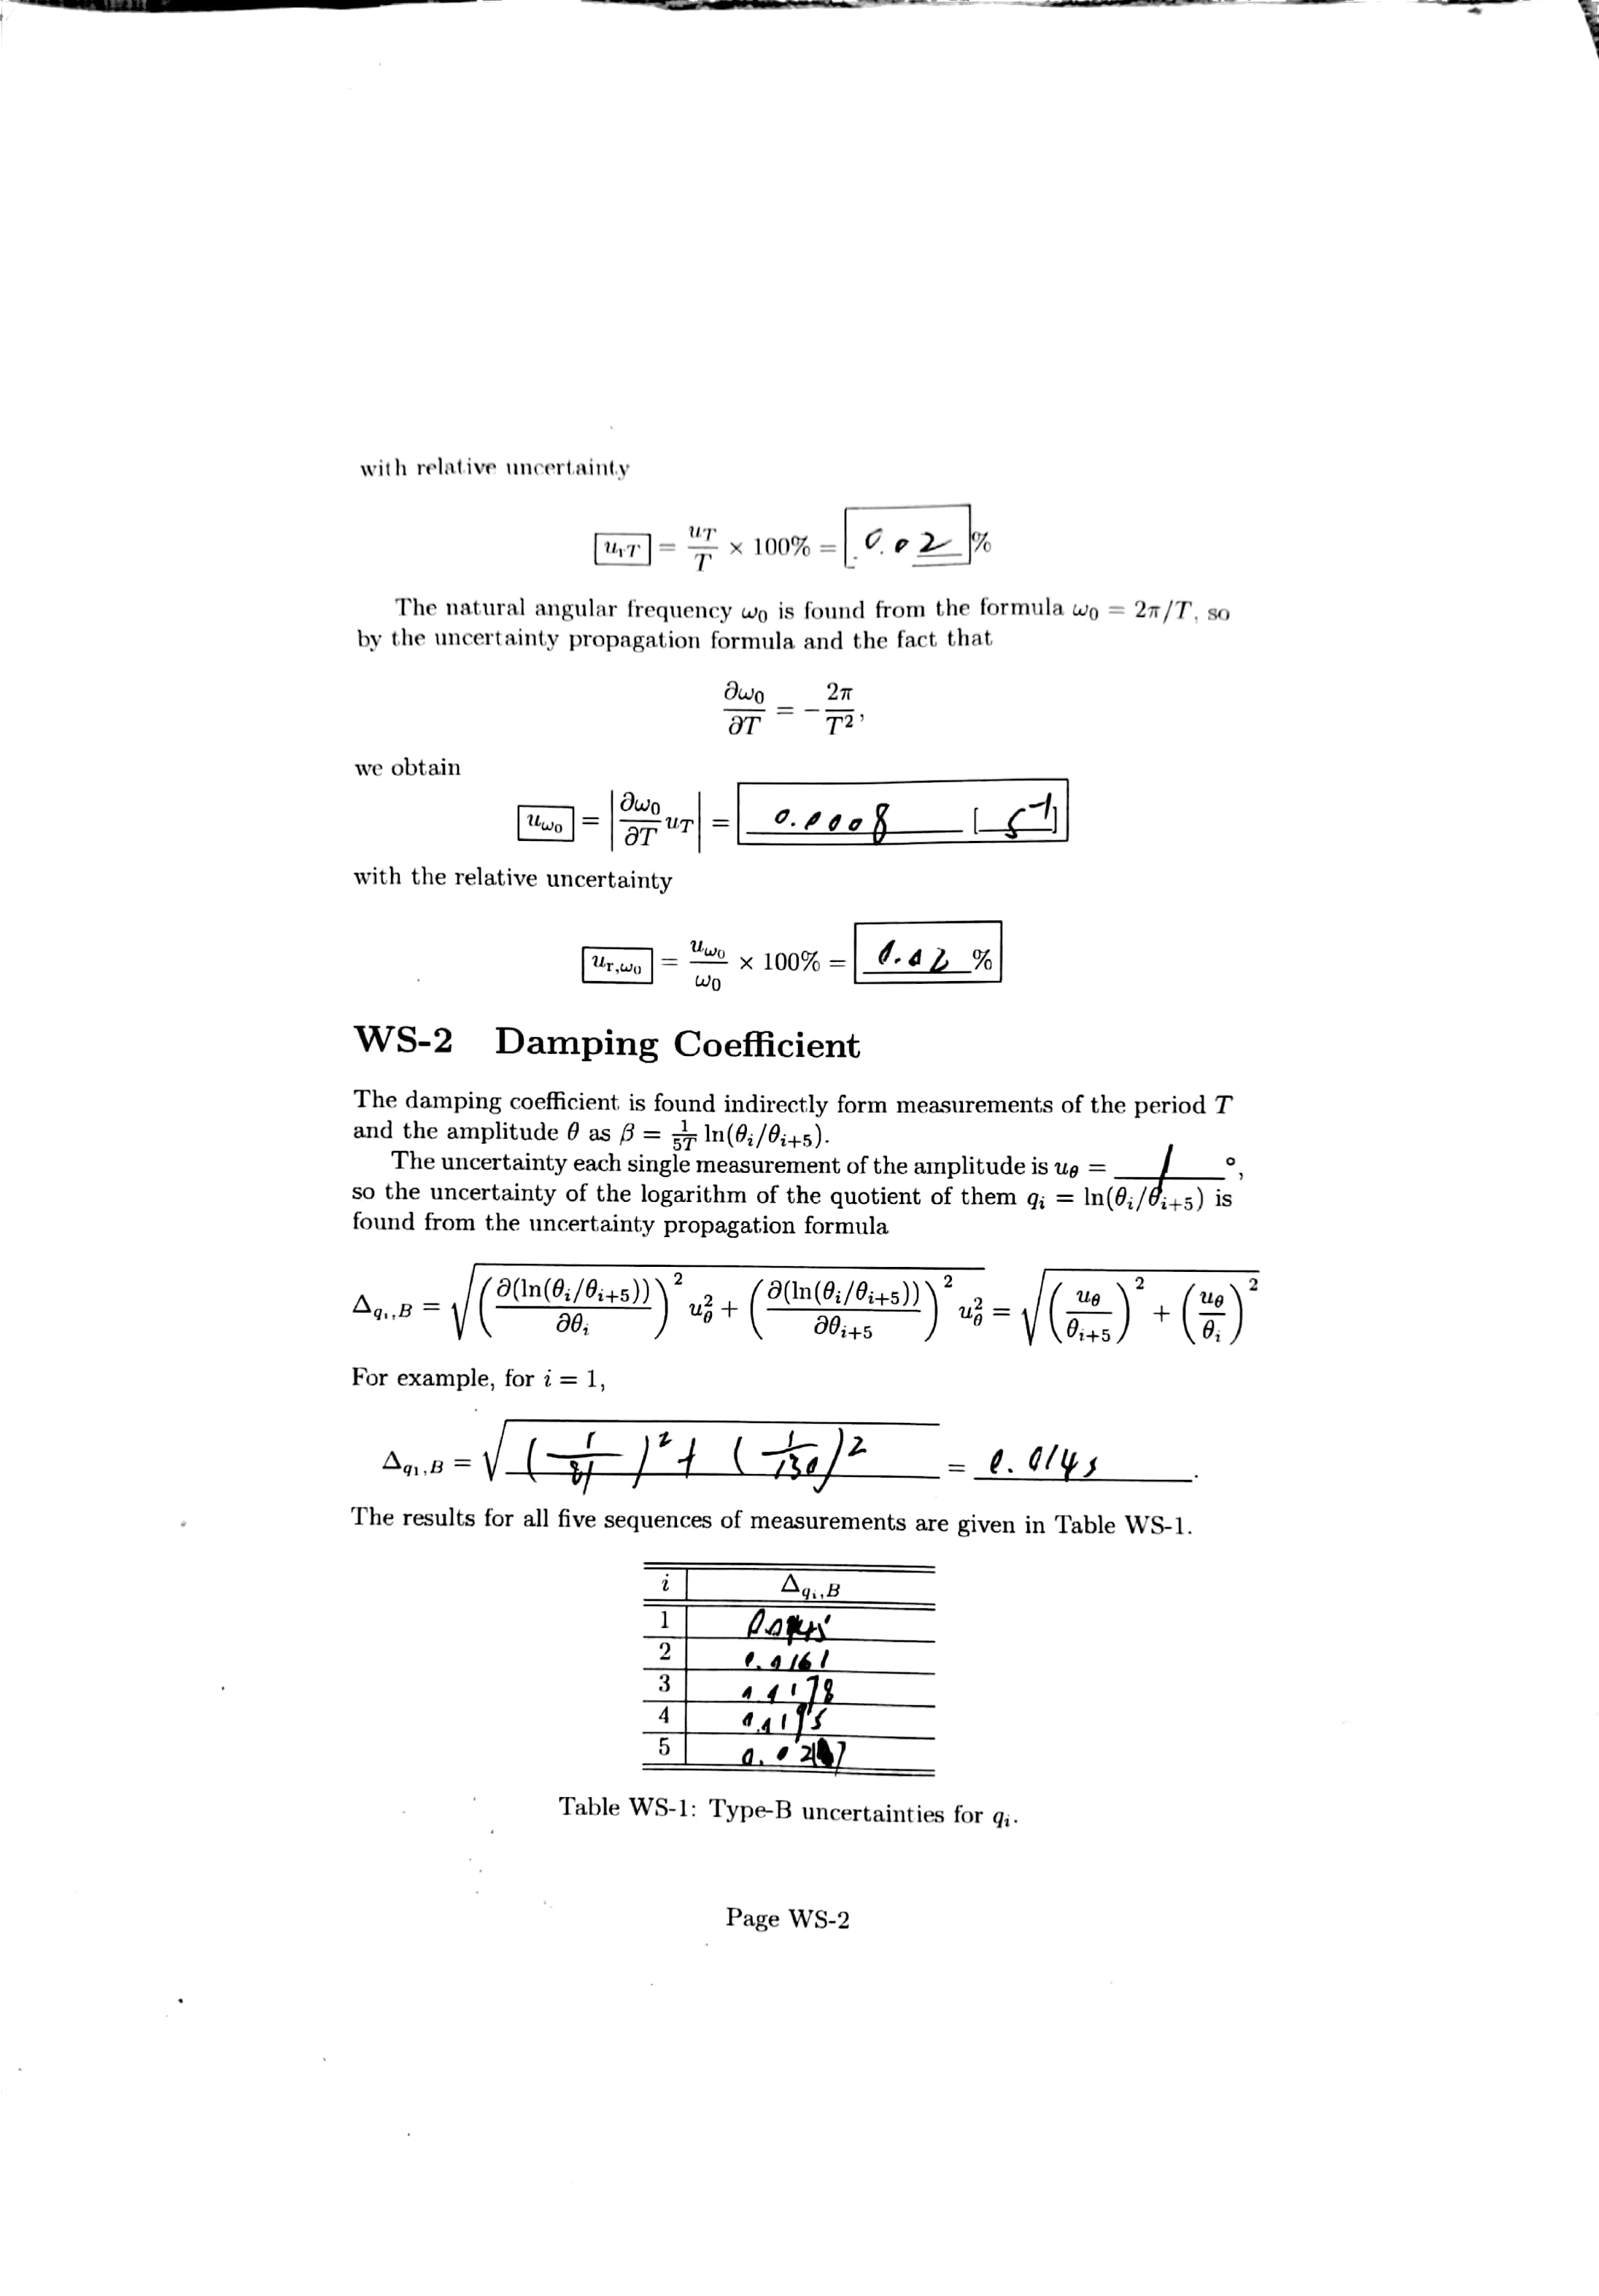 with relative uncertainty
u_{rT} = u_T / T × 100% = 0.02 %
The natural angular frequency ω₀ is found from the formula ω₀ = 2π/T, so
by the uncertainty propagation formula and the fact that
∂ω₀/∂T = − 2π/T²,
we obtain
u_{ω₀} = |∂ω₀/∂T u_T| = 0.0008 [s⁻¹]
with the relative uncertainty
u_{r,ω₀} = u_{ω₀}/ω₀ × 100% = 0.02 %
WS-2 Damping Coefficient
The damping coefficient is found indirectly form measurements of the period T
and the amplitude θ as β = 1/5T ln(θ_i/θ_{i+5}).
The uncertainty each single measurement of the amplitude is u_θ = 1 °,
so the uncertainty of the logarithm of the quotient of them q_i = ln(θ_i/θ_{i+5}) is
found from the uncertainty propagation formula
Δ_{q_i,B} = √((∂(ln(θ_i/θ_{i+5}))/∂θ_i)² u_θ² + (∂(ln(θ_i/θ_{i+5}))/∂θ_{i+5})² u_θ²) = √((u_θ/θ_{i+5})² + (u_θ/θ_i)²)
For example, for i = 1,
Δ_{q₁,B} = √((1/81)² + (1/130)²) = 0.0145 .
The results for all five sequences of measurements are given in Table WS-1.
i Δ_{q_i,B}
1 0.0145
2 0.0161
3 0.0178
4 0.0195
5
Table WS-1: Type-B uncertainties for q_i.
Page WS-2